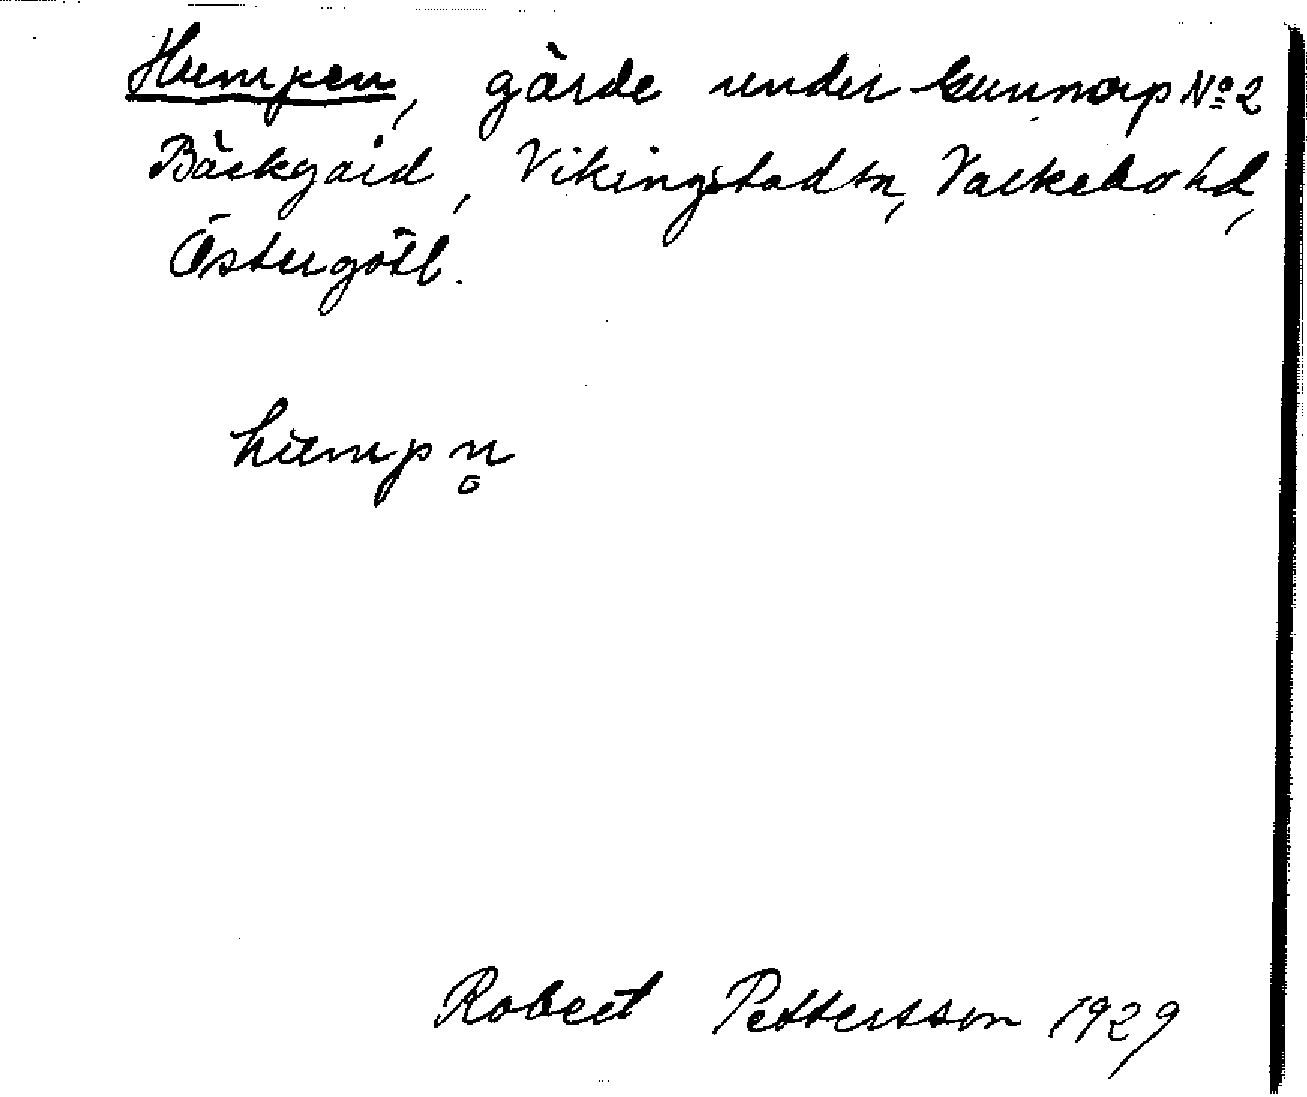 Humpen, gärde under Gunnorp No 2
Bäckgård, Vikingstad sn, Valkebo hd,
Östergötl.
hump n̥
Robert Pettersson 1929